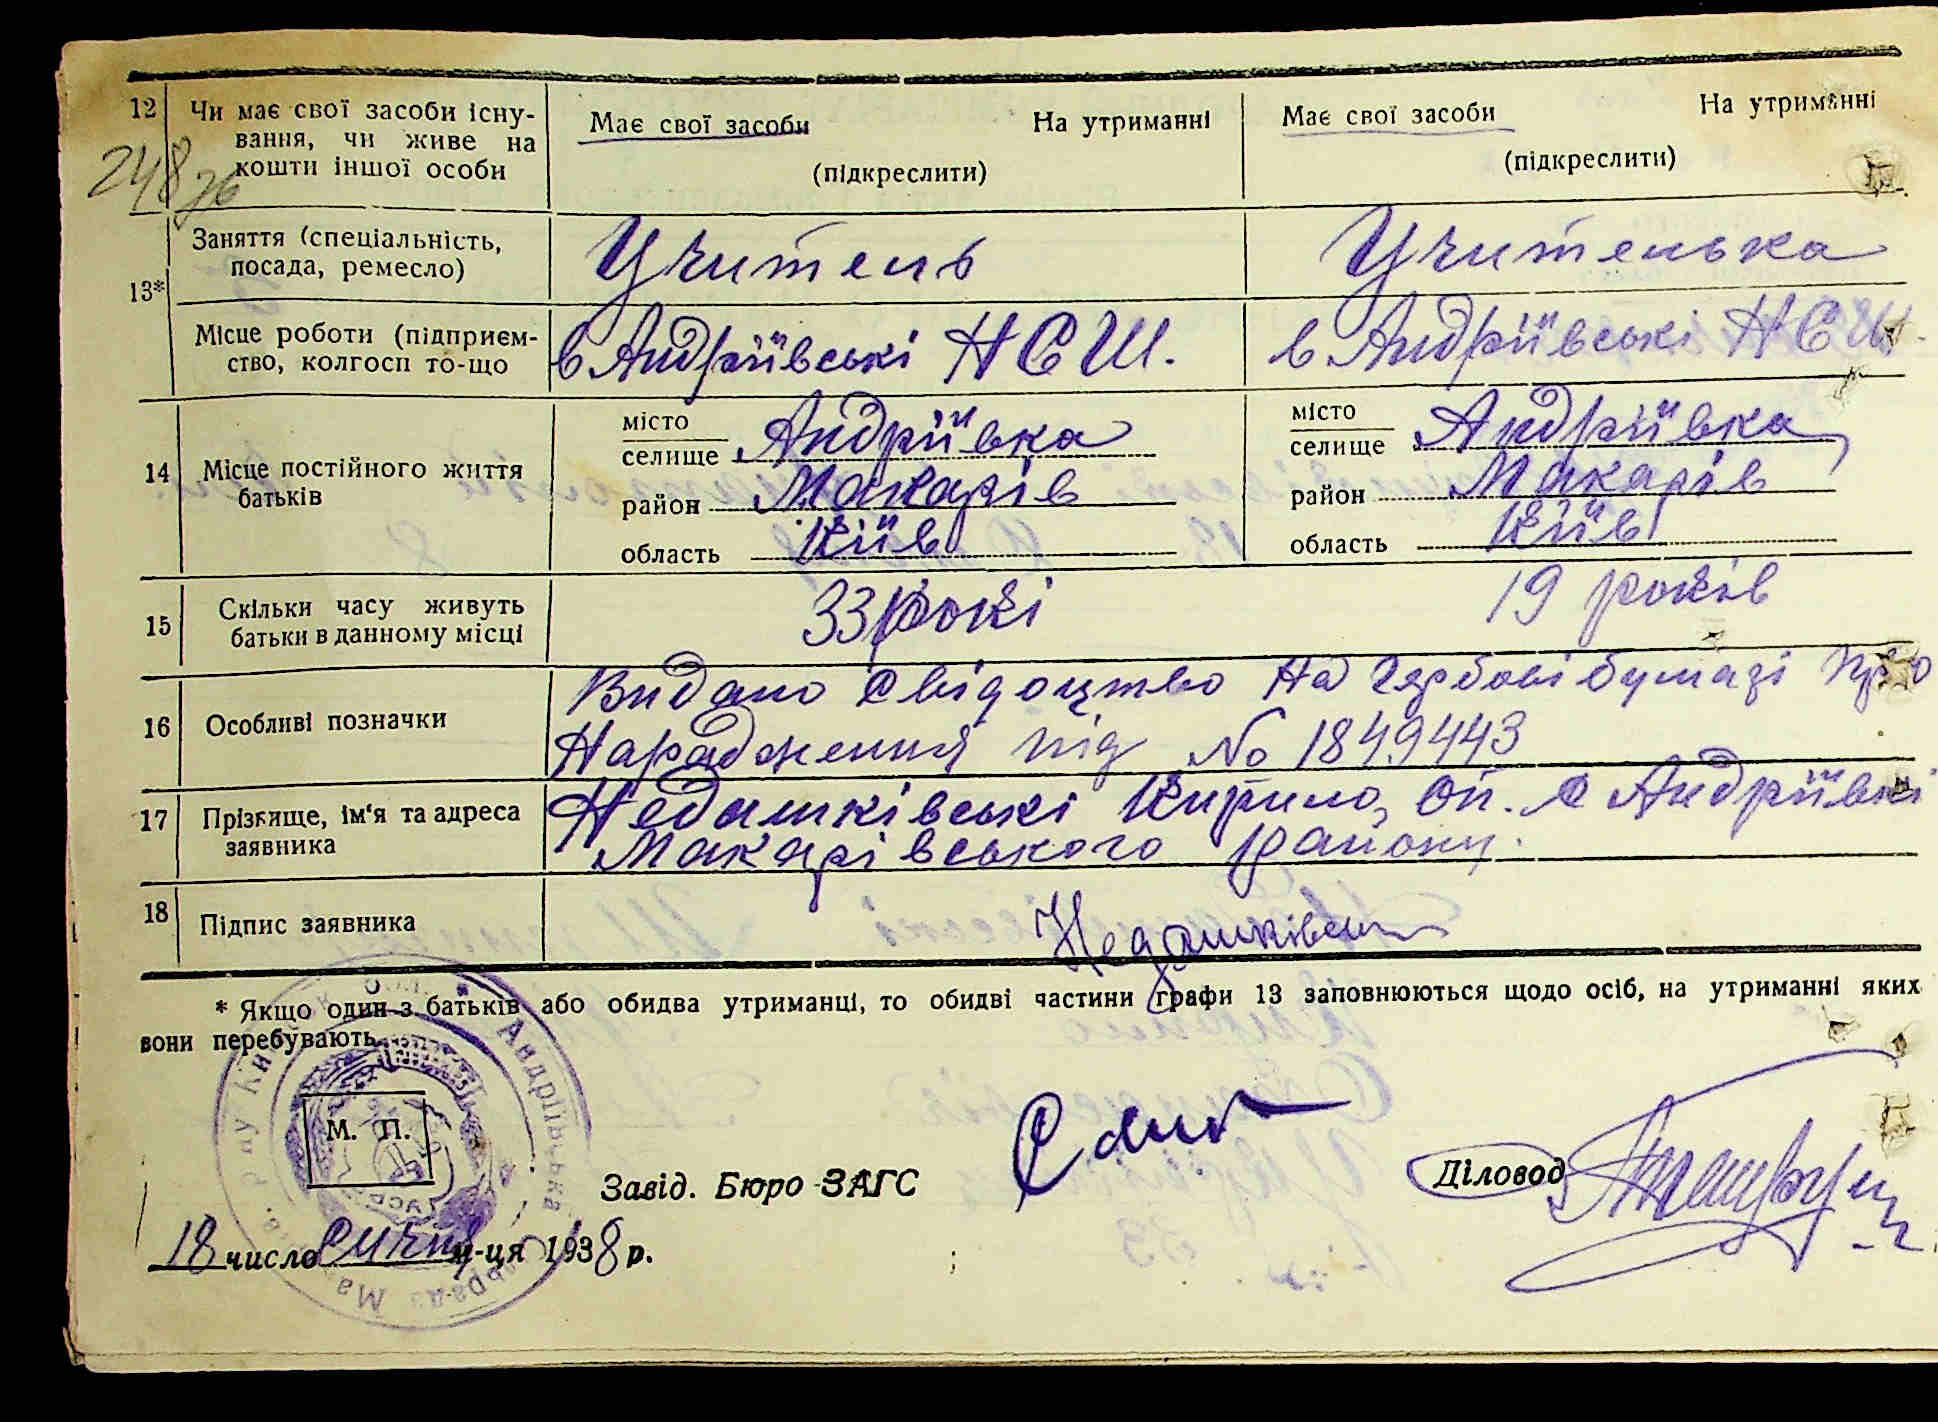 12 Чи має свої засоби існу-
вання, чи живе на
кошти іншої особи
Має свої засоби На утриманні
(підкреслити)
Має свої засоби На утриманні
(підкреслити)
248
13* Заняття (спеціальність,
посада, ремесло)
Учитель
Учителька
Місце роботи (підприєм-
ство, колгосп то-що
в Андріївські НСШ.
в Андріївські НСШ.
14 Місце постійного життя
батьків
місто
селище Андріївка
район Макарів
область Київ
місто
селище Андріївка
район Макарів
область Київ
15 Скільки часу живуть
батьки в данному місці
33 рокі
19 років
16 Особливі позначки
Видано Свідоцтво на Гербові бумазі про
Народження під No 1849443
17 Прізвище, ім'я та адреса
заявника
Недашківські Кирило, Оп. с Андріївкі
Макарівського району.
18 Підпис заявника
Недашківськ
* Якщо один з батьків або обидва утриманці, то обидві частини графи 13 заповнюються щодо осіб, на утриманні яких
вони перебувають.
М. П.
Завід. Бюро ЗАГС
Діловод
18 число Січня м-ця 1938 р.